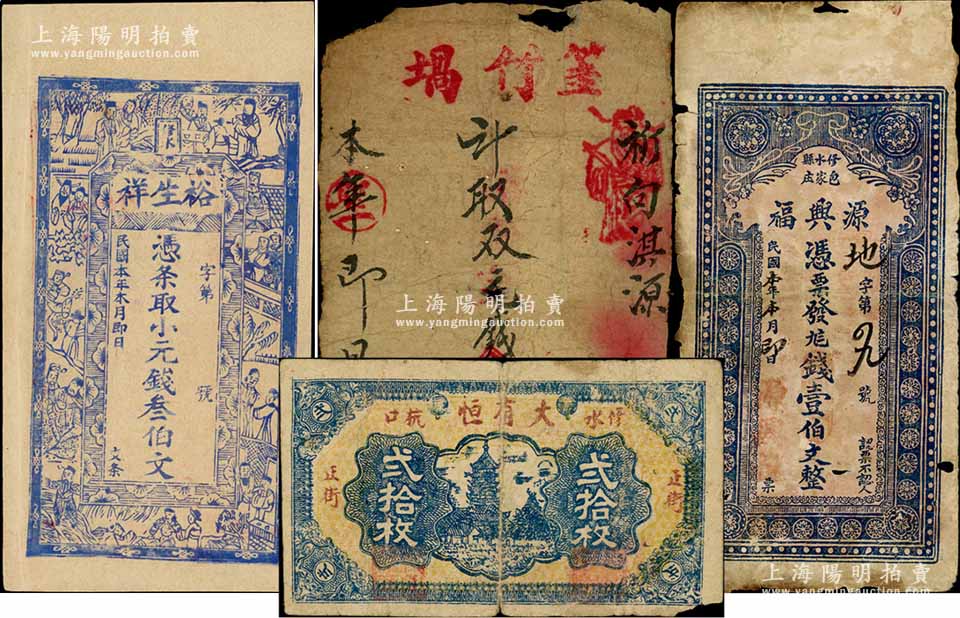 上海陽明拍賣
www.yangmingauction.com
祥生裕
字第　號
憑条取小元錢叁伯文
民國本年本月即日
文条
堝竹
祈向淇源
計取双元錢
本年即日
上海陽明拍賣
www.yangmingauction.com
縣水修
福興源
地字第　號
認票不認人
憑票發足錢壹伯文整
民國本年本月即日
票
口杭　恒有大　水修
正街
正街
貳拾枚
貳拾枚
上海陽明拍賣
www.yangmingauction.com
上海陽明拍賣
www.yangmingauction.com